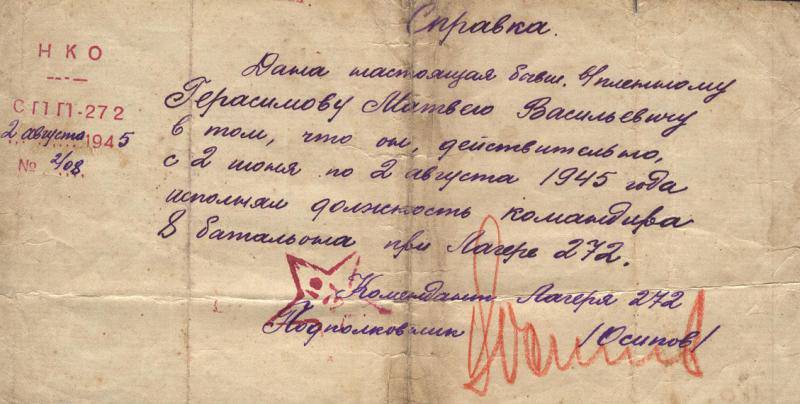 Справка.
НКО
СПП-272
2 августа 1945
№ 2/08
Дана настоящая бывш. в/пленному
Герасимову Матвею Васильевичу
в том, что он, действительно,
с 2 июня по 2 августа 1945 года
исполнял должность командира
8 батальона при Лагере 272.
Комендант Лагеря 272
Подполковник /Осипов/
Осипов